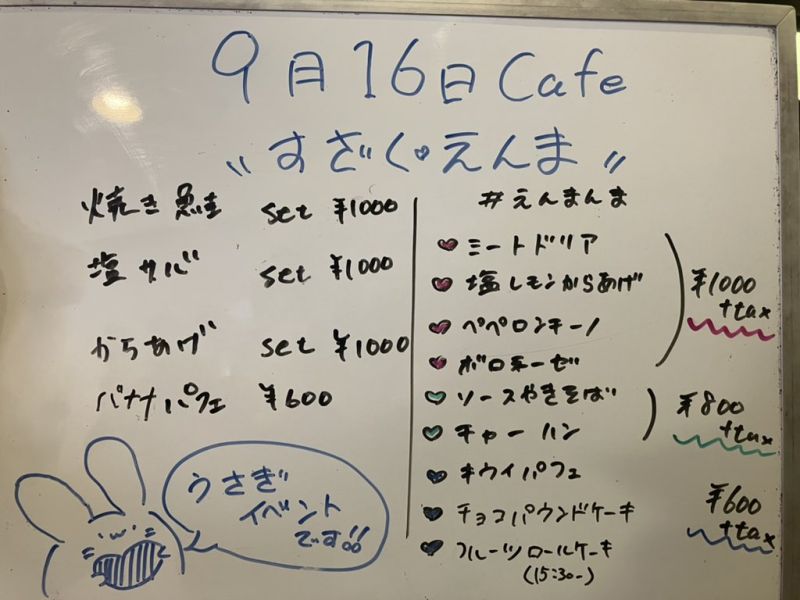 9月16日 Cafe
"すざく・えんま"
焼き鮭 set ¥1000
塩サバ set ¥1000
からあげ set ¥1000
バナナパフェ ¥600
うさぎ
イベント
です!!
#えんまんま
ミートドリア
塩レモンからあげ
ペペロンチーノ
ボロネーゼ
¥1000
+tax
ソースやきそば
チャーハン
¥800
+tax
キウイパフェ
チョコパウンドケーキ
フルーツロールケーキ
(15:30-)
¥600
+tax